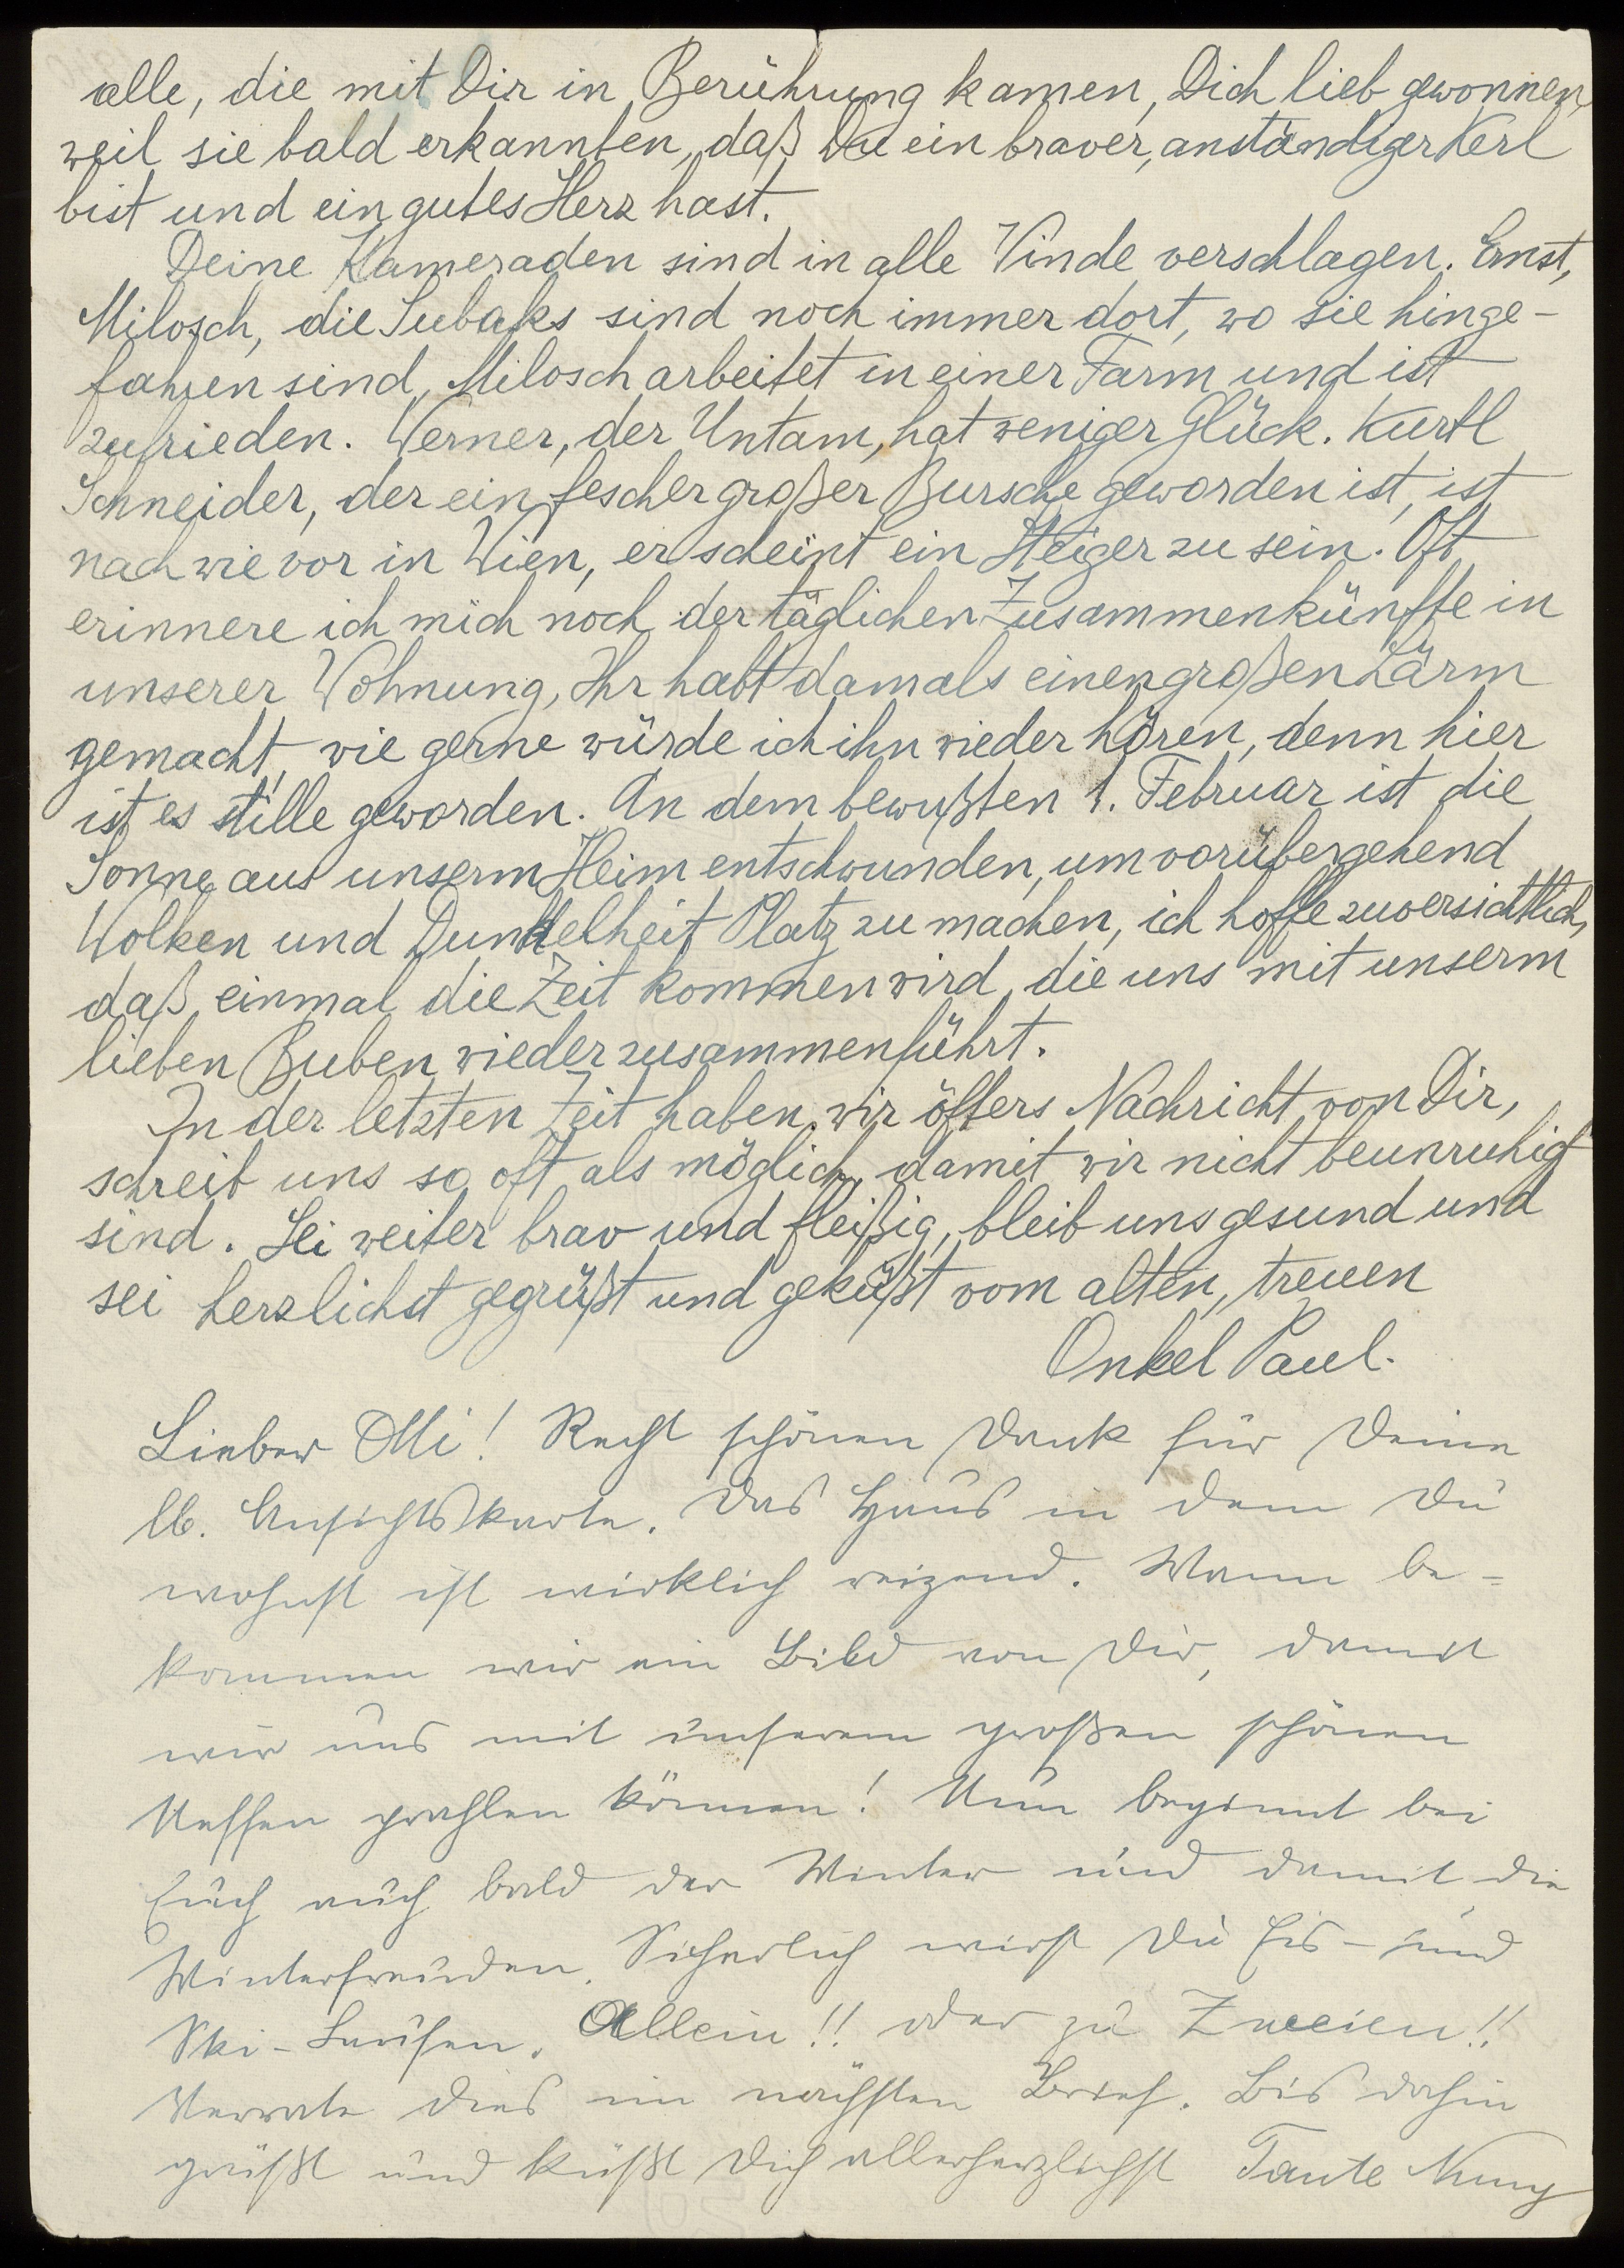 alle, die mit Dir in Berührung kamen, Dich lieb gewonnen,
weil sie bald erkannten, daß Du ein braver, anständiger Kerl
bist und ein gutes Herz hast.
Deine Kameraden sind in alle Winde verschlagen. Ernst,
Milosch, die Subaks sind noch immer dort, wo sie hinge-
fahren sind, Milosch arbeitet in einer Farm und ist
zufrieden. Werner, der Untam, hat weniger Glück. Kurtl
Schneider, der ein fescher großer Bursche geworden ist, ist
nach wie vor in Wien, er scheint ein Steiger zu sein. Oft
erinnere ich mich noch der täglichen Zusammenkünfte in
unserer Wohnung, Ihr habt damals einen großen Lärm
gemacht, wie gerne würde ich ihn wieder hören, denn hier
ist es stille geworden. An dem bewußten 1. Februar ist die
Sonne aus unserm Heim entschwunden, um vorübergehend
Wolken und Dunkelheit Platz zu machen, ich hoffe zuversichtlich,
daß einmal die Zeit kommen wird, die uns mit unserm
lieben Buben wieder zusammenführt.
In der letzten Zeit haben wir öfters Nachricht von Dir,
schreib uns so oft als möglich, damit wir nicht beunruhigt
sind. Sei weiter brav und fleißig, bleib uns gesund und
sei herzlichst gegrüßt und geküßt vom alten, treuen
Onkel Paul.
Lieber Olli! Recht schönen Dank für Deine
lb. Ansichtskarte. Das Haus in dem Du
wohnst ist wirklich reizend. Wann be=
kommen wir ein Bild von Dir, damit
wir uns mit unserem großen schönen
Neffen prahlen können! Nun beginnt bei
Euch auch bald der Winter und damit die
Winterfreuden. Sicherlich wirst Du Eis- und
Ski-Laufen. Allein!! oder zu Zweien!!
Verrate dies im nächsten Brief. Bis dahin
grüßt und küßt Dich allerherzlichst Tante